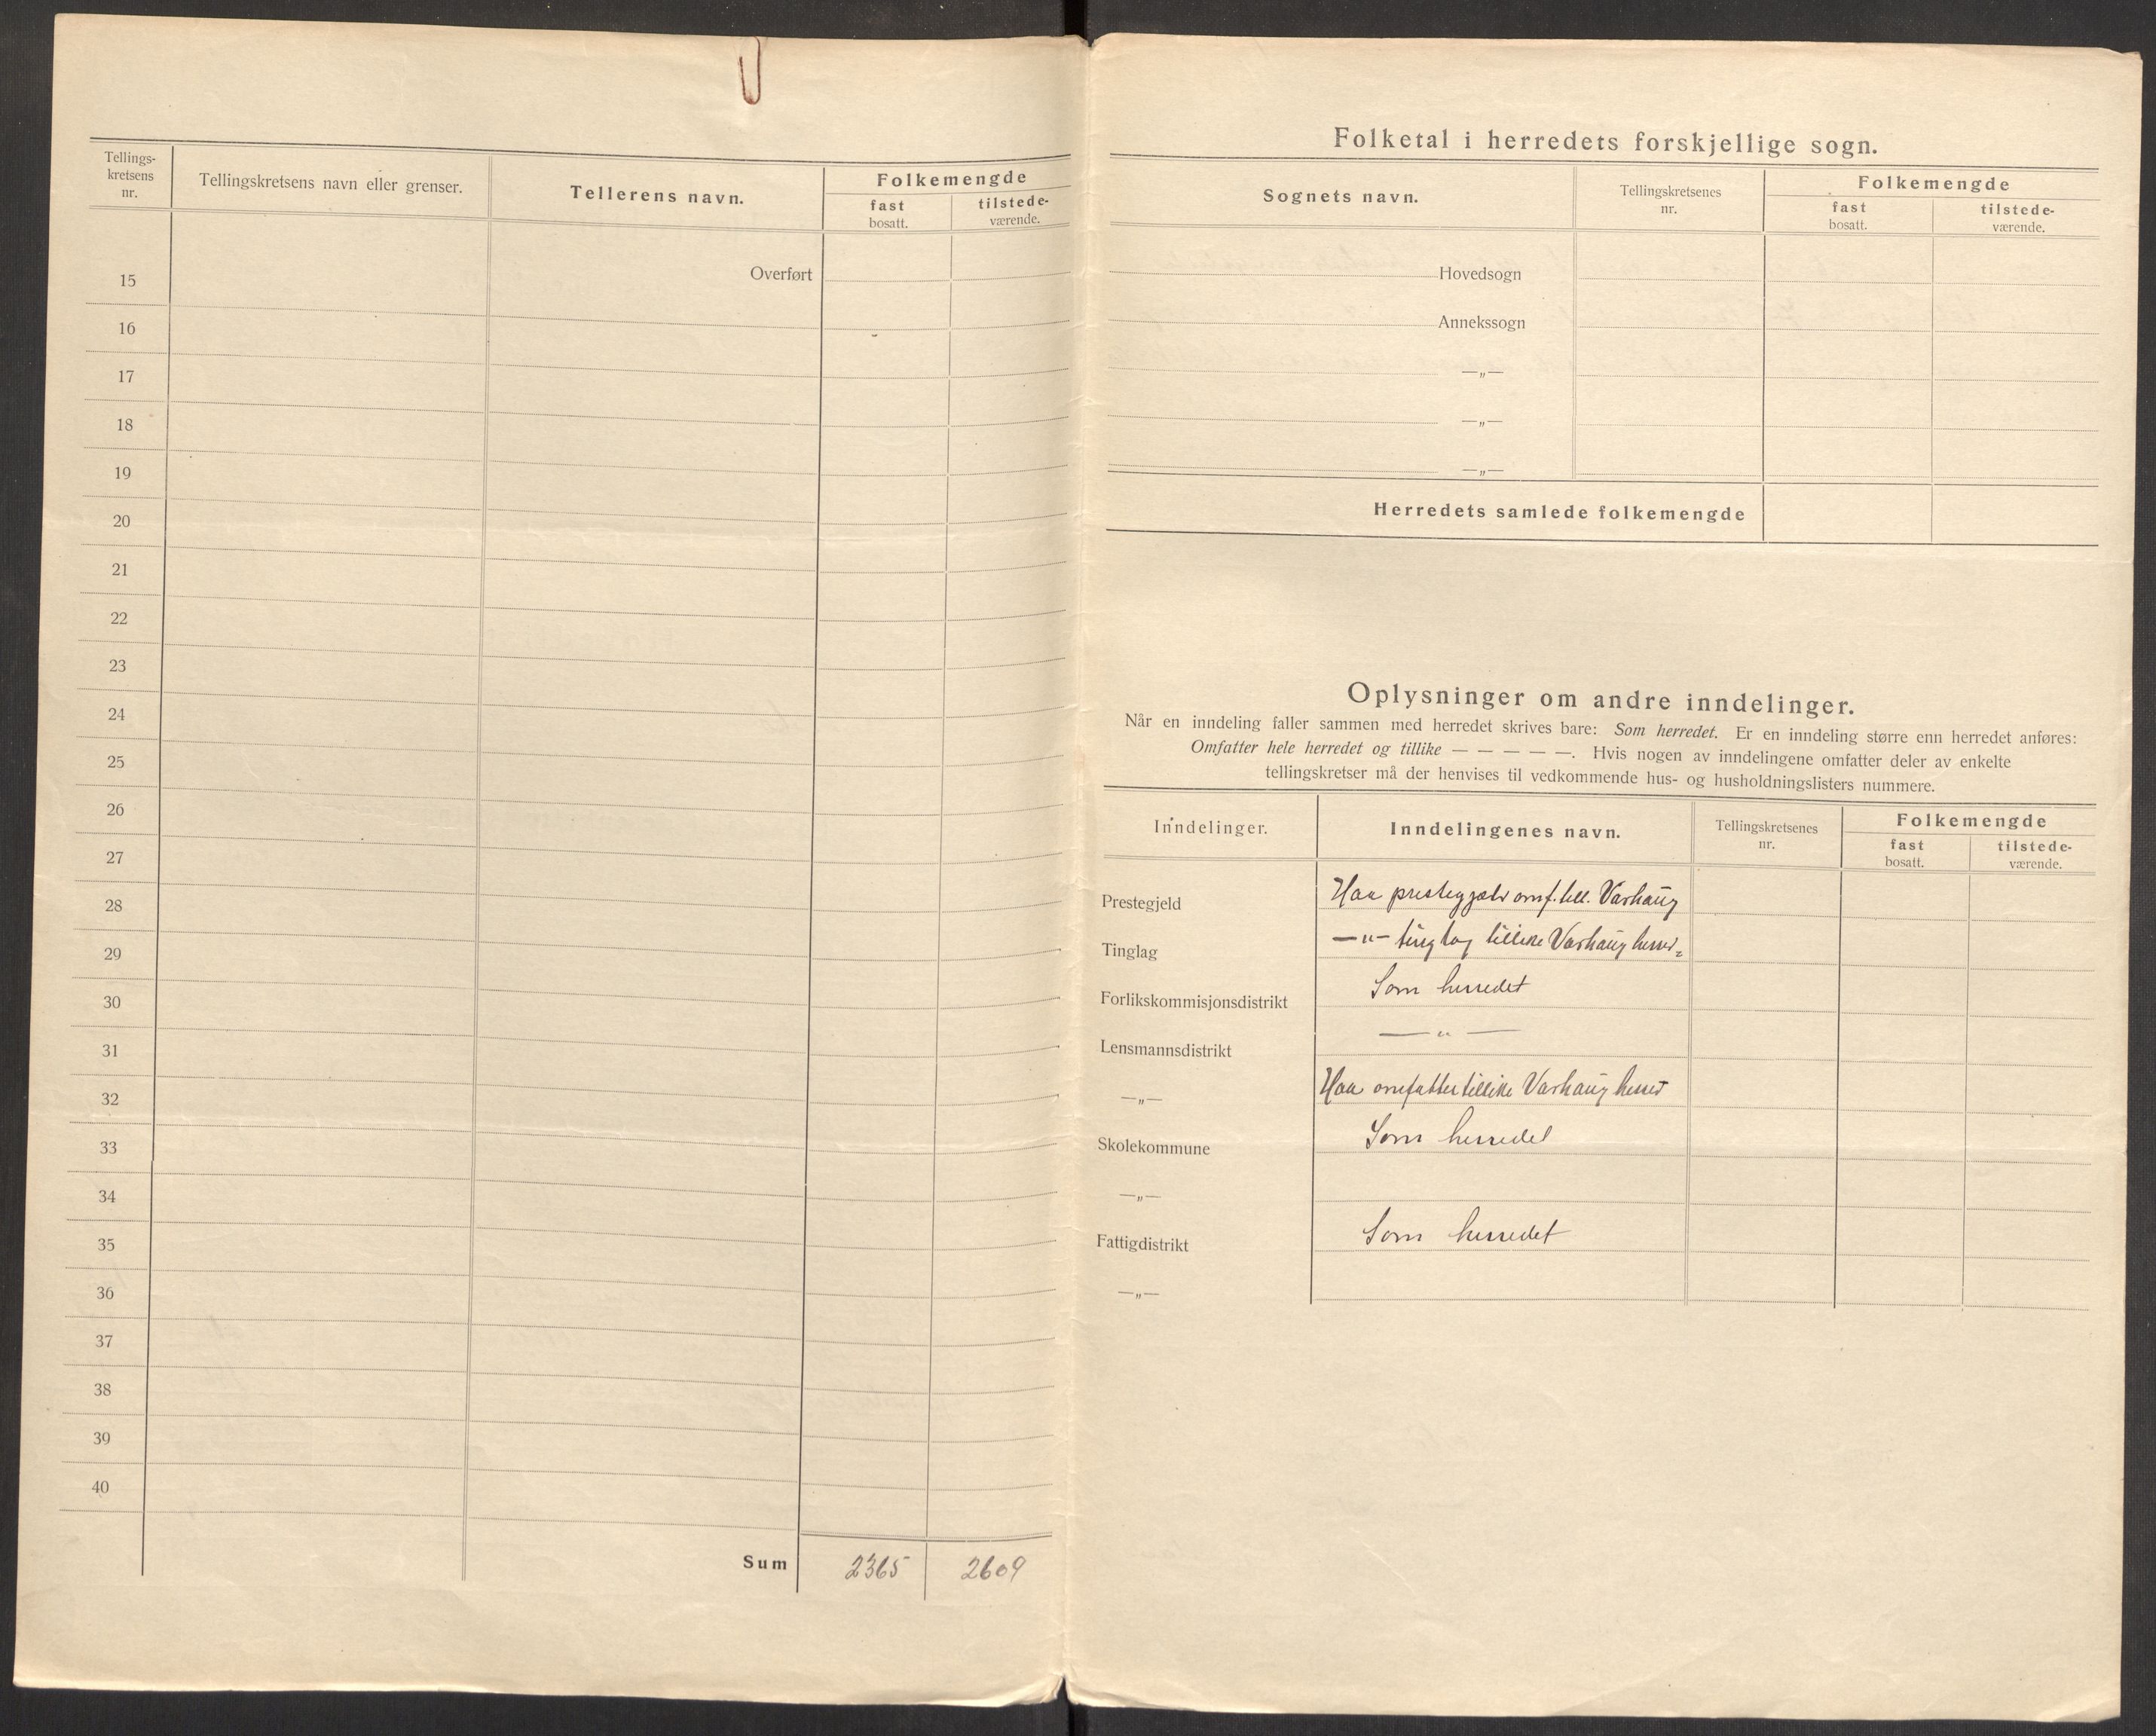 Tellings-
kretsens
nr.
Tellingskretsens navn eller grenser.
Tellerens navn.
Folkemengde
fast
bosatt.
tilstede-
værende.
Overført
15
16
17
18
19
20
21
22
23
24
25
26
27
28
29
30
31
32
33
34
35
36
37
38
39
40
Sum 2365 2609
Folketal i herredets forskjellige sogn.
Sognets navn.
Tellingskretsenes
nr.
Folkemengde
fast
bosatt.
tilstede-
værende.
Hovedsogn
Annekssogn
—„—
—„—
—„—
Herredets samlede folkemengde
Oplysninger om andre inndelinger.
Når en inndeling faller sammen med herredet skrives bare: Som herredet. Er en inndeling større enn herredet anføres:
Omfatter hele herredet og tillike — — — — —. Hvis nogen av inndelingene omfatter deler av enkelte
tellingskretser må der henvises til vedkommende hus- og husholdningslisters nummere.
Inndelinger.
Inndelingenes navn.
Tellingskretsenes
nr.
Folkemengde
fast
bosatt.
tilstede-
værende.
Prestegjeld Haa prestegjæld omf. till. Varhaug
Tinglag —"— tinglag tillike Varhaug herred
Forlikskommisjonsdistrikt Som herredet
Lensmannsdistrikt —"—
—„— Haa omfatter tillike Varhaug herred
Skolekommune Som herredet
—„—
Fattigdistrikt Som herredet
—„—